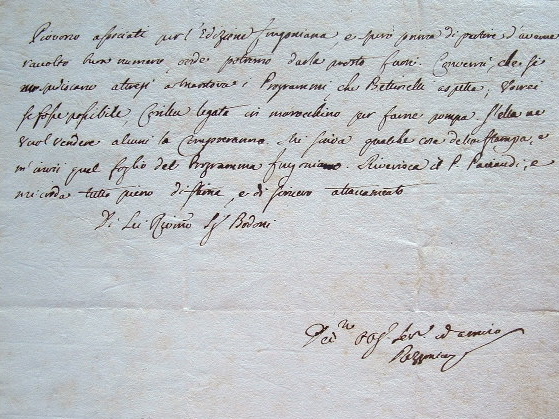 Piovono associati per l'Edizione frugoniana, e spero prima di partire d'averne
raccolto buon numero, onde potremo darla presto fuori. Converrà, che si
spediscano altresì a Mantova i Programmi, che Bettinelli aspetta, Vorrei
se fosse possibile, legato in marrochino per farne pompa. S'ella ne
vuol vendere alcuni la compreranno. Mi scriva qualche cosa della stampa, e
m'invii quel foglio del Programma frugoniano. Riverisca il P. Paciaudi, e
mi creda tutto pieno di stima, e di sincero attaccamento
Di Lei Sig. Bodoni
ed amico
Rezzonico